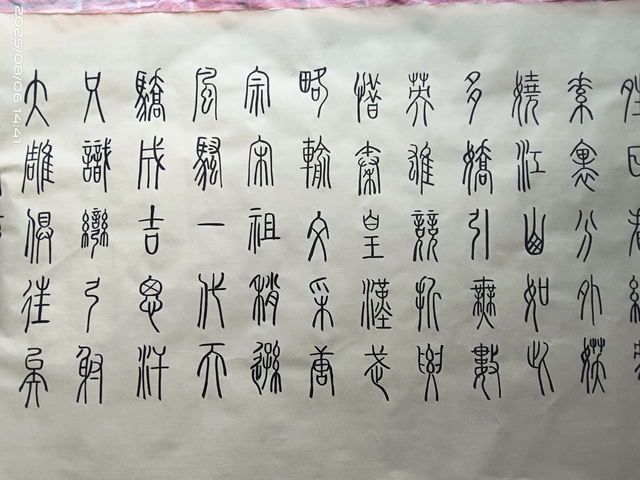 晴日看紅裝
素裹分外妖
嬈江山如此
多嬌引無數
英雄競折腰
惜秦皇漢武
略輸文采唐
宗宋祖稍遜
風騷一代天
驕成吉思汗
只識彎弓射
大雕俱往矣
2025/08/06 14:41